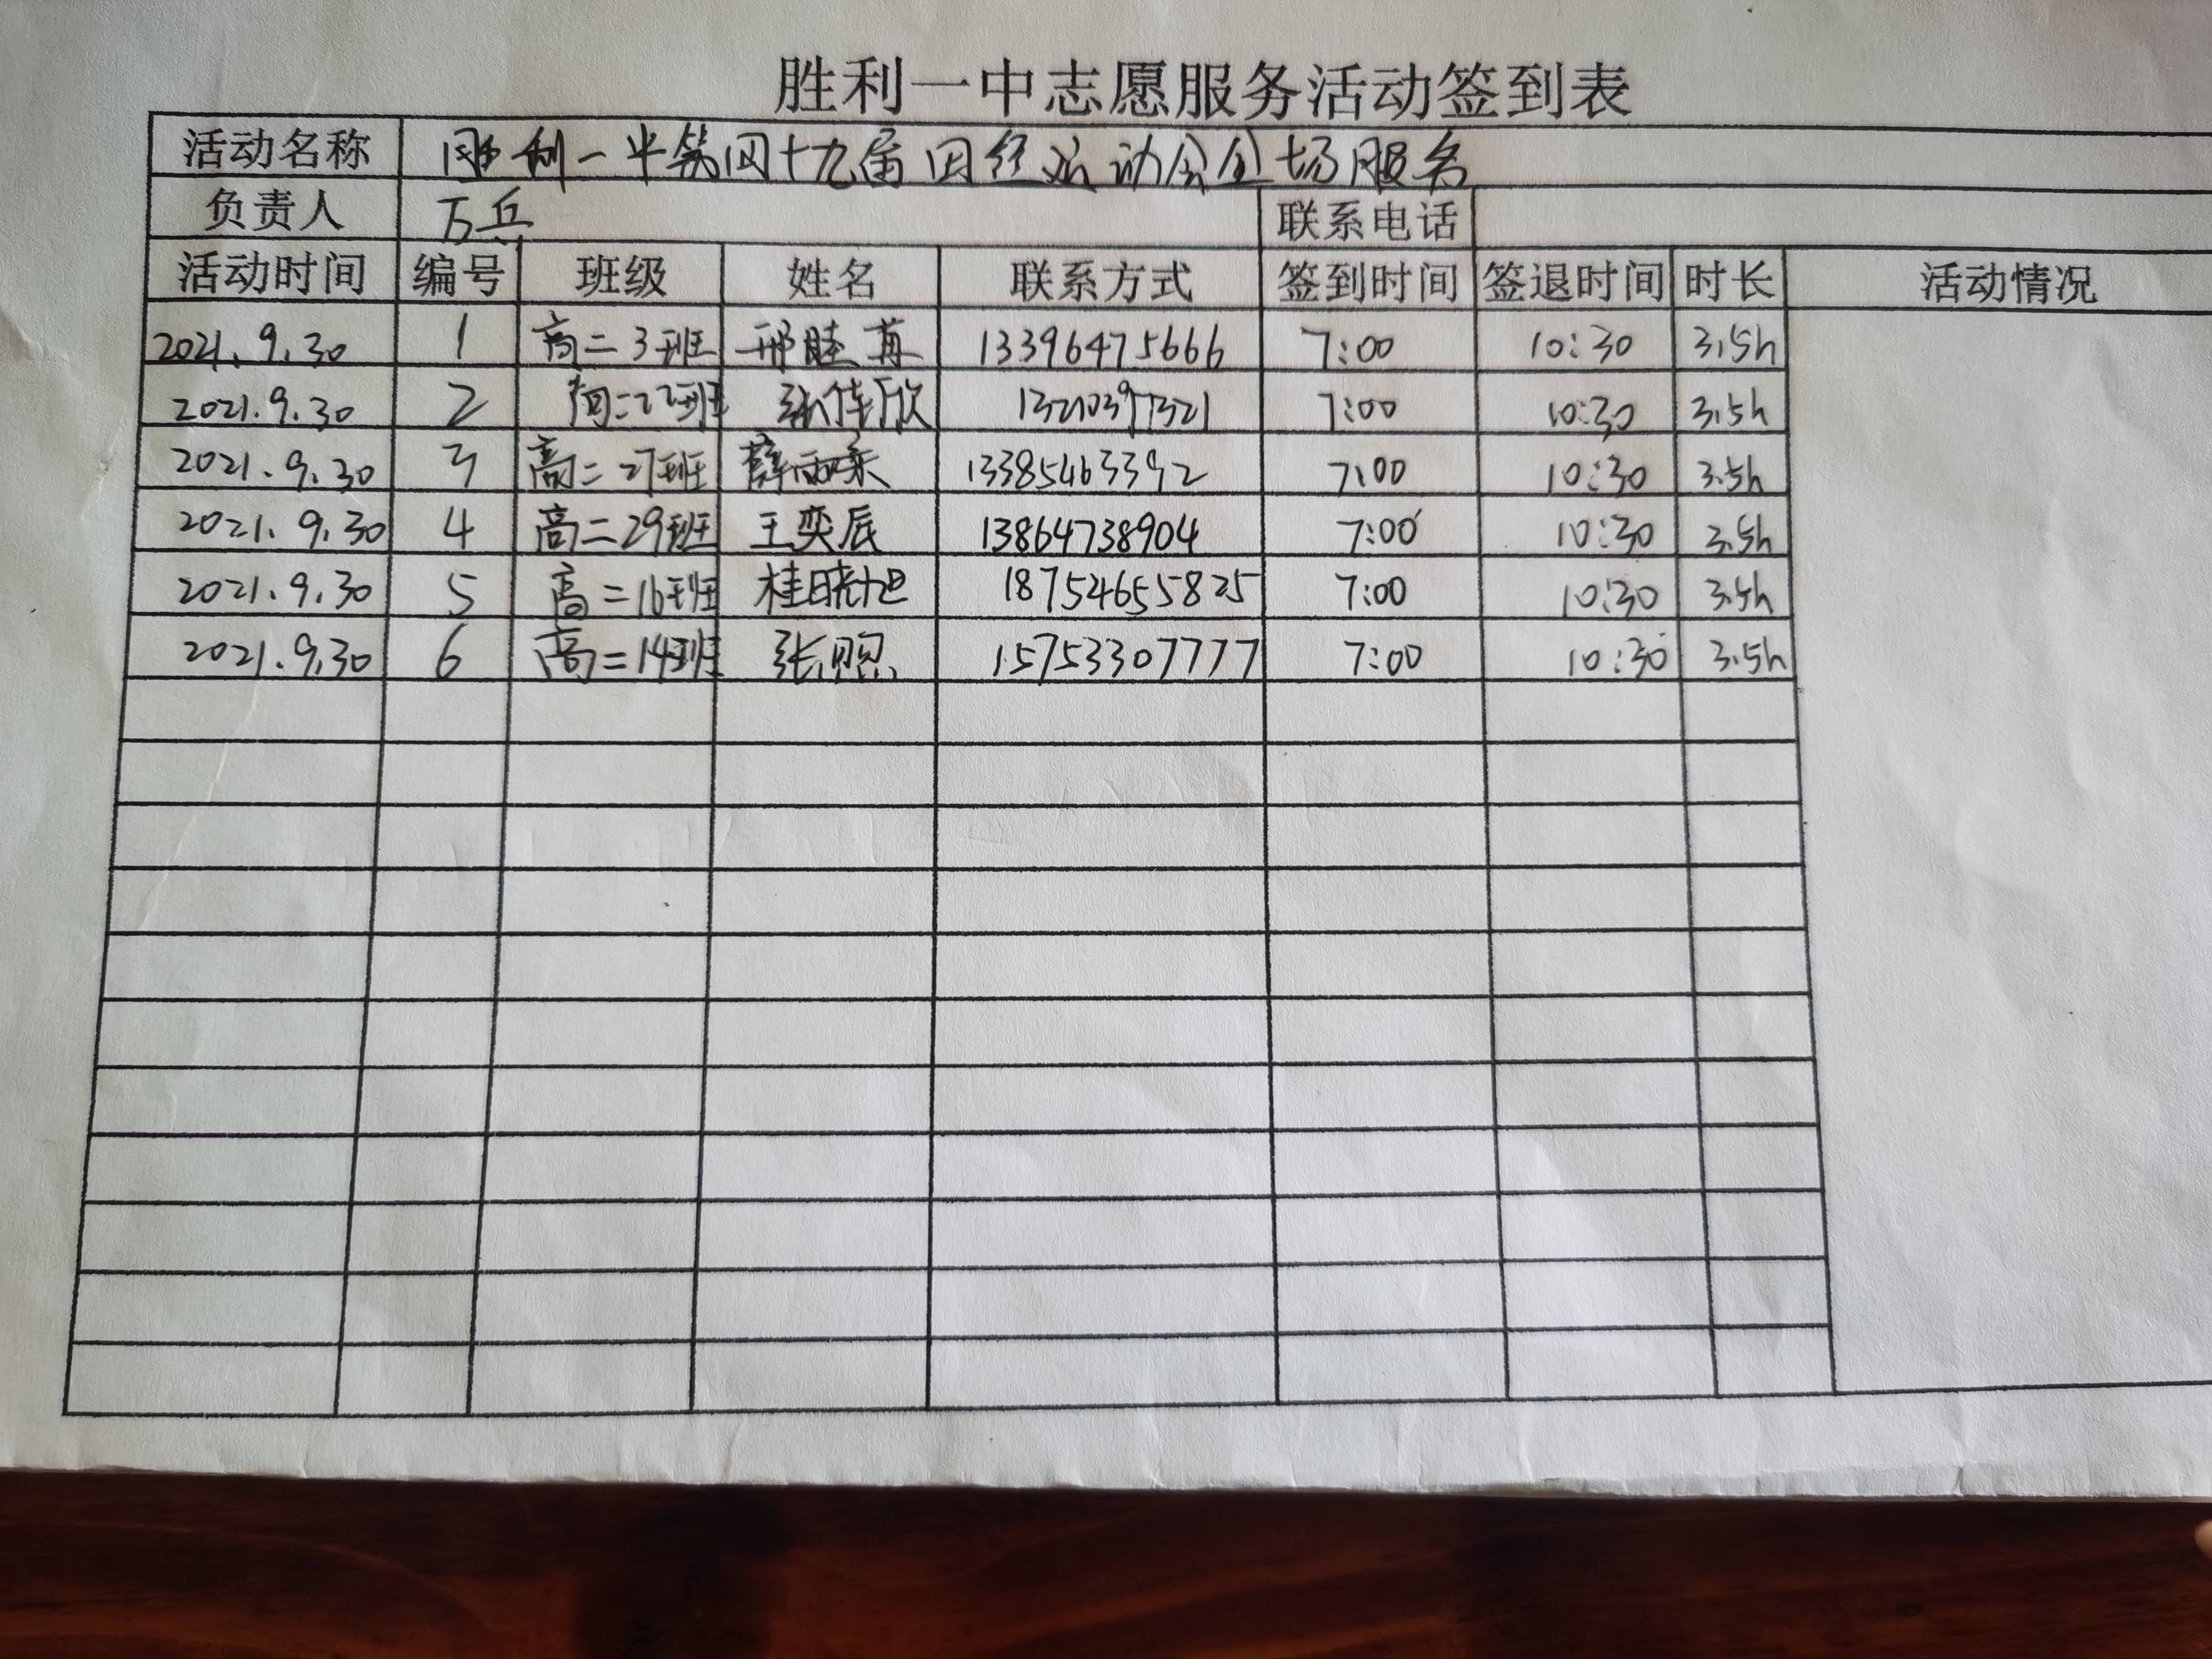 胜利一中志愿服务活动签到表
活动名称 胜利一中第四十九届田径运动会全场服务
负责人 万兵 联系电话
活动时间 编号 班级 姓名 联系方式 签到时间 签退时间 时长 活动情况
2021.9.30 1 高二3班 邢睦苒 13396475666 7:00 10:30 3.5h
2021.9.30 2 高二22班 张佳欣 13210397321 7:00 10:30 3.5h
2021.9.30 3 高二27班 薛雨桑 13385463392 7:00 10:30 3.5h
2021.9.30 4 高二29班 王奕辰 13864738904 7:00 10:30 3.5h
2021.9.30 5 高二16班 桂晓旭 18754655825 7:00 10:30 3.5h
2021.9.30 6 高二14班 张照 15753307777 7:00 10:30 3.5h